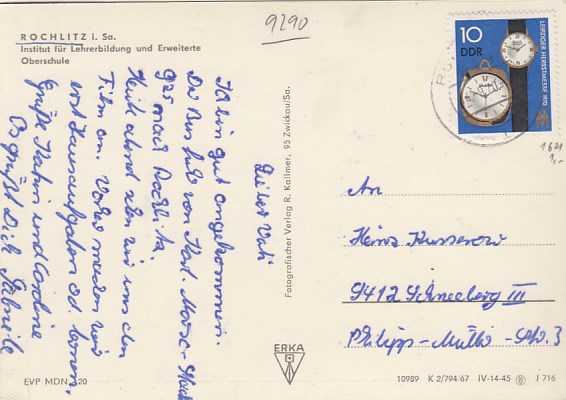 ROCHLITZ i. Sa.
Institut für Lehrerbildung und Erweiterte
Oberschule
9290
10
DDR
LEIPZIGER HERBSTMESSE 1970
Lieber Vati
Ich bin gut angekommen.
Der Bus fuhr von Karl-Marx-Stadt
925 nach Rochlitz.
Heute abend sehen wir uns den
Film an. Vorher werden wir
erst Hausaufgaben od. lernen.
Grüße Katrin und
Es grüßt Dich Gabriele
Fotografischer Verlag R. Kallmer, 95 Zwickau/Sa.
1621
1,-
An
Heinz Kusserow
9412 Schneeberg III
Philipp-Müller-Str. 3
ERKA
EVP MDN 0,20
10989 K 2/794/67 IV-14-45 J 716